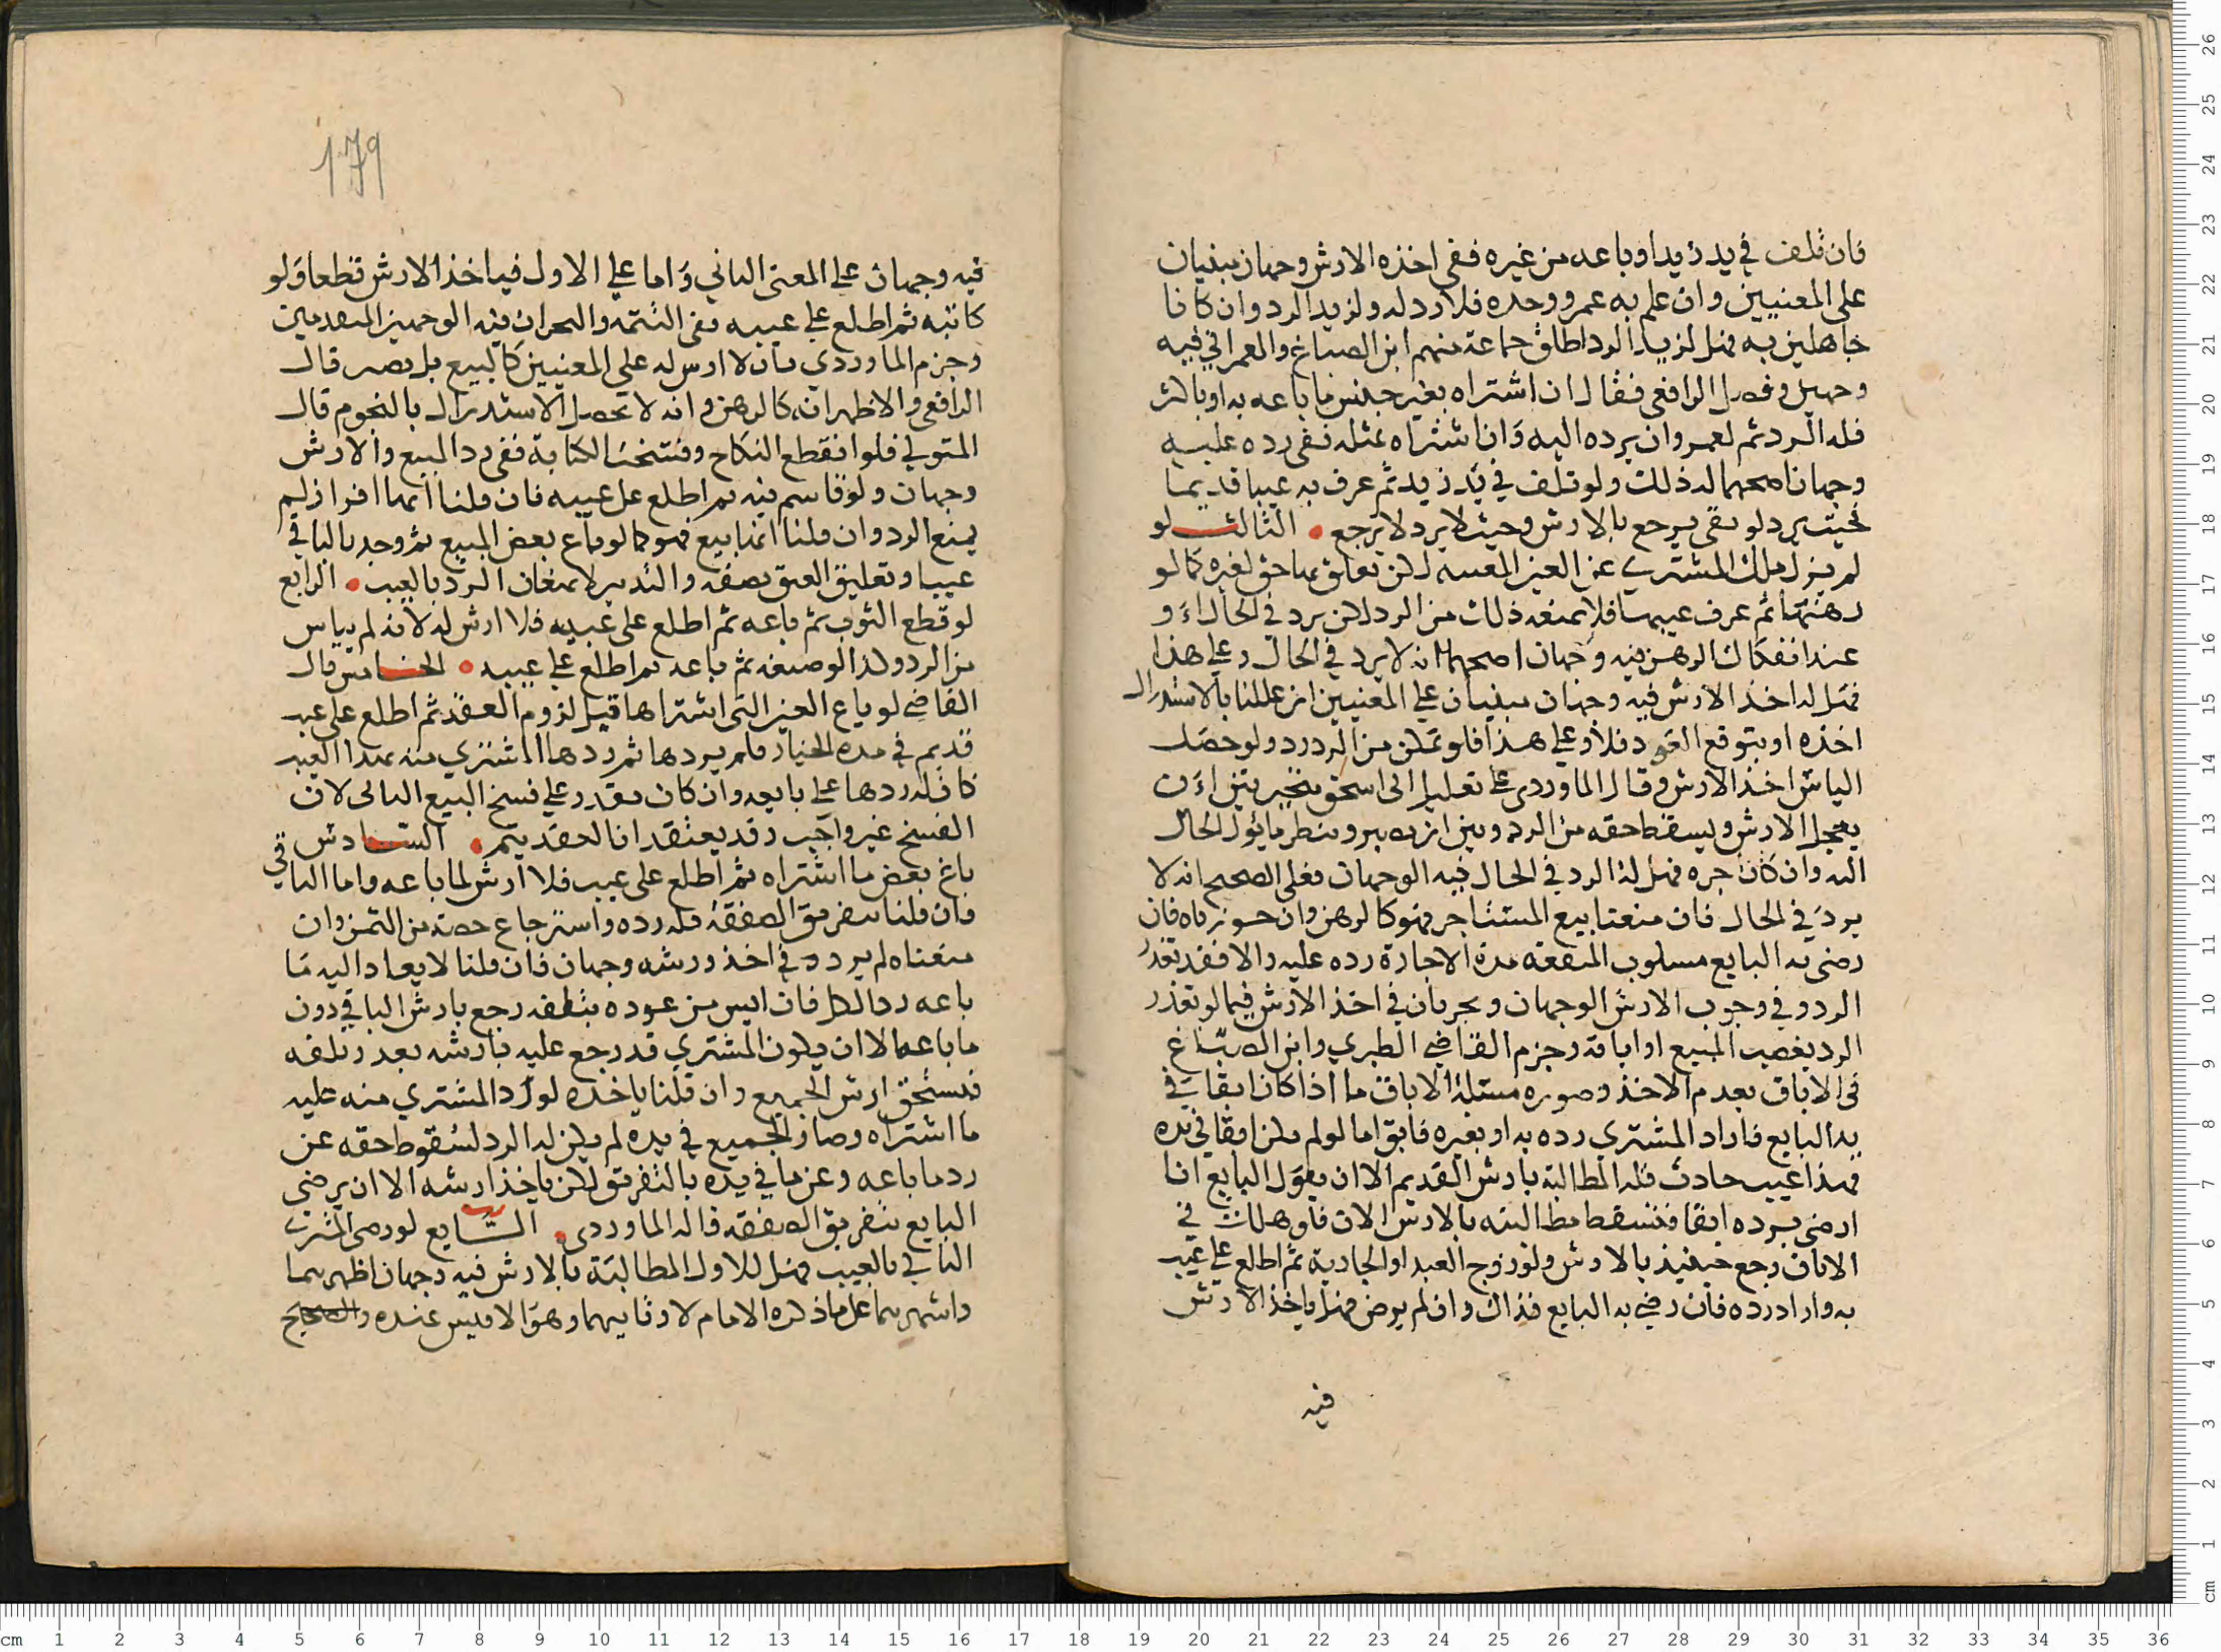 فان تلف في يد زيد او باعه من غيره ففي اخذه الارش وجهان مبنيان
على المعنيين وان علم به عمرو وحده فلا رد له ولزيد الرد وان كانا
جاهلين به فهل لزيد الرد اطلق جماعة منهم ابن الصباغ والعمراني فيه
وجهين وفصل الرافعي فقال ان اشتراه بغير جنس ما باعه به او باكثر
فله الرد ثم لعمرو ان يرده اليه وان اشتراه بمثله ففي رده عليه
وجهان اصحهما له ذلك ولو تلف في يد زيد ثم عرف به عيبا قديما
فحيث يرد لو بقي يرجع بالارش وحيث لا يرد لا يرجع الثالث لو
لم يزل ملك المشتري عن العين المعيبه لكن تعلق بها حق لغيره كما لو
رهنها ثم عرف عيبها فلا يمنعه ذلك من الرد لكن يرد في الحال او
عند انفكاك الرهن فيه وجهان اصحهما انه لا يرد في الحال وعلى هذا
فهل له اخذ الارش فيه وجهان مبنيان على المعنيين ان عللنا بالاستدراك
اخذه او بتوقع العود فلا وعلى هذا فلو تمكن من الرد رد ولو حصل
الياس اخذ الارش وقال الماوردي على تعليل ابي اسحق يتخير بين ان
يعجل الارش ويسقط حقه من الرد وبين ان يصبر وينظر ما يؤل الحال
اليه وان كان اجره فهل له الرد في الحال فيه الوجهان فعلى الصحيح انه لا
يرد في الحال فان منعنا بيع المستاجر فهو كالرهن وان جوزناه فان
رضي به البايع مسلوب المنفعه مدة الاجارة رده عليه والا فقد تعذر
الرد وفي وجوب الارش الوجهان ويجريان في اخذ الارش فيما لو تعذر
الرد بغصب المبيع او اباقه وجزم القاضي الطبري وابن الصبّاغ
في الاباق بعدم الاخذ وصوره مسئلة الاباق ما اذا كان ابقا في
يد البايع فاراد المشتري رده به او بغيره فابق اما لو لم يكن ابقا في يده
فهذا عيب حادث فله المطالبة بارش القديم الا ان يقول البايع انا
ارضى برده ابقا فتسقط مطالبته بالارش الان فلو هلك في
الاباق رجع حينيذ بالارش ولو زوج العبد او الجارية ثم اطلع على عيب
به واراد رده فان رضي به البايع فذاك وان لم يرض فهل ياخذ الارش
فيه
179
فيه وجهان على المعنى الثاني واما على الاول فياخذ الارش قطعا ولو
كاتبه ثم اطلع على عيبه ففي التتمه والبحر ان فيه الوجهين المتقدمين
وجزم الماوردي بان لا ارش له على المعنيين كالبيع بل يصبر قال
الرافعي والاظهر انه كالرهن وانه لا يحصل الاستدراك بالنجوم قال
المتولي فلو انقطع النكاح وفسخت الكتابة ففي رد المبيع والارش
وجهان ولو قاسم فيه ثم اطلع على عيبه فان قلنا انها افراز لم
يمنع الرد وان قلنا انها بيع فهو كما لو باع بعض المبيع ثم وجد بالباقي
عيبا وتعليق العتق بصفه والتدبير لا يمنعان الرد بالعيب الرابع
لو قطع الثوب ثم باعه ثم اطلع على عيبه فلا ارش له لانه لم ييأس
من الرد وكذا لو صبغه ثم باعه ثم اطلع على عيبه الخامس قال
القاضي لو باع العين التي اشتراها قبل لزوم العقد ثم اطلع على عيب
قديم في مده الخيار فلم يردها ثم ردها المشتري منه بهذا العيب
كان له ردها على بايعه وان كان يقدر على فسخ البيع الثاني لان
الفسخ غير واجب وقد يعتقد ان العقد يتم السادس
باع بعض ما اشتراه ثم اطلع على عيب فلا ارش لما باعه واما الباقي
فان قلنا بتفريق الصفقة فله رده واسترجاع حصته من الثمن وان
منعناه لم يرد وفي اخذ ارشه وجهان فان قلنا لا يعاد اليه ما
باعه رد الكل فان ايس من عوده بتلفه رجع بارش الباقي دون
ما باعه الا ان يكون المشتري قد رجع عليه بارشه بعد تلفه
فيستحق ارش الجميع وان قلنا ياخذه لو رد المشتري منه عليه
ما اشتراه وصار الجميع في يده لم يكن له الرد لسقوط حقه عن
رد ما باعه وعن ما في يده بالتفريق لكن ياخذ ارشه الا ان يرضى
البايع بتفريق الصفقه قاله الماوردي السّابع لو رضي المشتري
الثاني بالعيب فهل للاول المطالبة بالارش فيه وجهان اظهرهما
واشهرهما على ما ذكره الامام لا وثانيهما وهو الاقيس عنده والصحيح